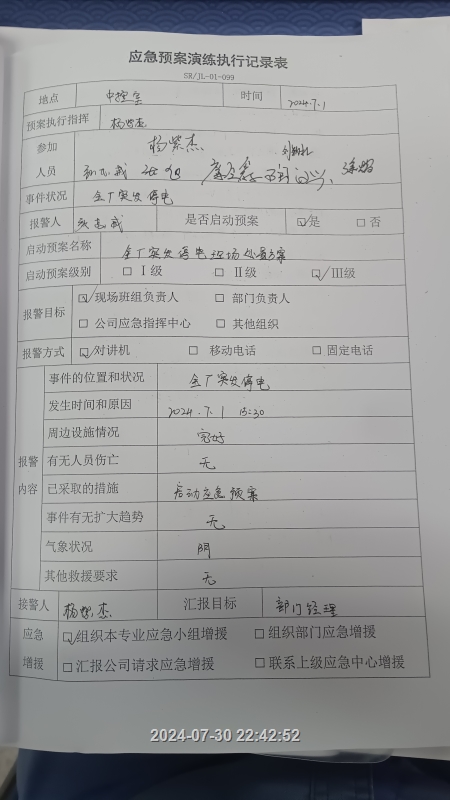 应急预案演练执行记录表
SR/JL-01-099
地点 中控室 时间 2024.7.1
预案执行指挥 杨紫杰
参加人员 杨紫杰
事件状况 全厂突发停电
报警人 是否启动预案 ☑是 □否
启动预案名称 全厂突发停电现场处置方案
启动预案级别 □Ⅰ级 □Ⅱ级 ☑Ⅲ级
报警目标 ☑现场班组负责人 □部门负责人
□公司应急指挥中心 □其他组织
报警方式 ☑对讲机 □移动电话 □固定电话
报警内容 事件的位置和状况 全厂突发停电
发生时间和原因 2024.7.1 15:30
周边设施情况 完好
有无人员伤亡 无
已采取的措施 启动应急预案
事件有无扩大趋势 无
气象状况 阴
其他救援要求 无
接警人 杨紫杰 汇报目标 部门经理
应急增援 ☑组织本专业应急小组增援 □组织部门应急增援
□汇报公司请求应急增援 □联系上级应急中心增援
2024-07-30 22:42:52